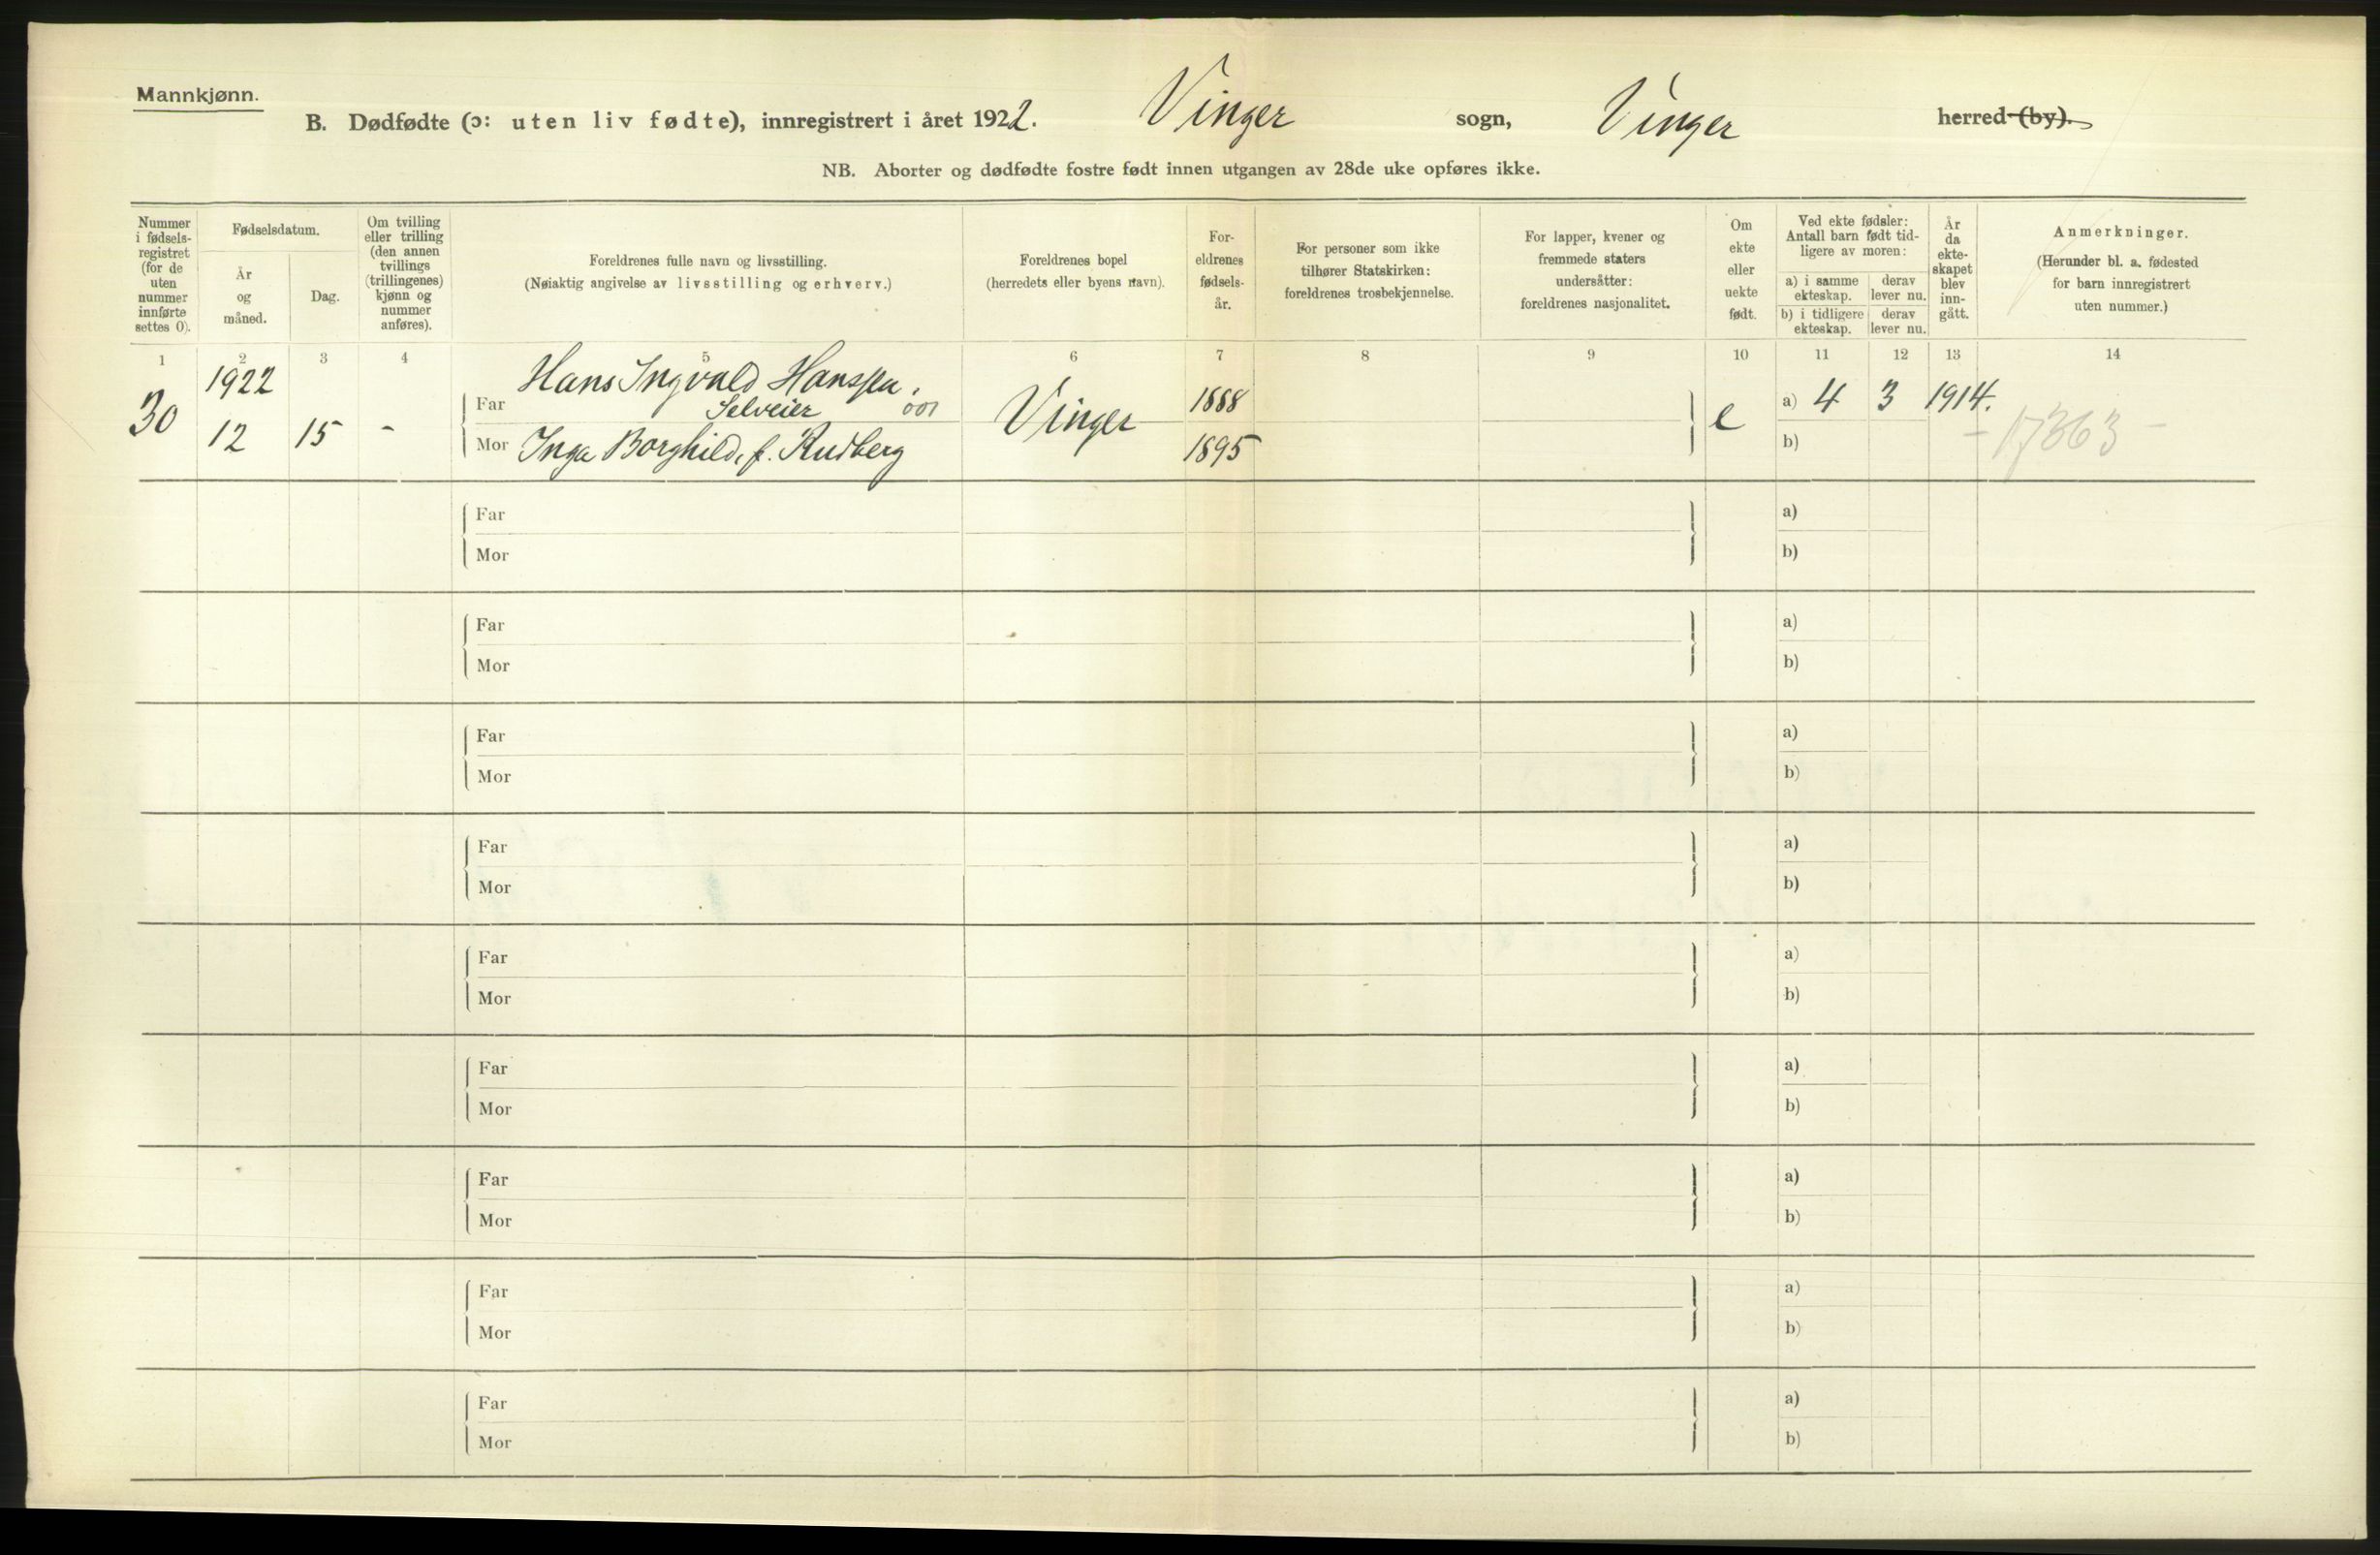 Mannkjønn.
B. Dødfødte (ɔ: uten liv fødte), innregistrert i året 1922. Vinger sogn, Vinger herred (by).
NB. Aborter og dødfødte fostre født innen utgangen av 28de uke opføres ikke.
Nummer
i fødsels-
registret
(for de
uten
nummer
innførte
settes 0).
Fødselsdatum.
År
og
måned.
Dag.
Om tvilling
eller trilling
(den annen
tvillings
(trillingenes)
kjønn og
nummer
anføres).
Foreldrenes fulle navn og livsstilling.
(Nøiaktig angivelse av livsstilling og erhverv.)
Foreldrenes bopel
(herredets eller byens navn).
For-
eldrenes
fødsels-
år.
For personer som ikke
tilhører Statskirken:
foreldrenes trosbekjennelse.
For lapper, kvener og
fremmede staters
undersåtter:
foreldrenes nasjonalitet.
Om
ekte
eller
uekte
født.
Ved ekte fødsler:
Antall barn født tid-
ligere av moren:
a) i samme
ekteskap.
derav
lever nu.
b) i tidligere
ekteskap.
derav
lever nu.
År
da
ekte-
skapet
blev
inn-
gått.
Anmerkninger.
(Herunder bl. a. fødested
for barn innregistrert
uten nummer.)
1 2 3 4 5 6 7 8 9 10 11 12 13 14
30
1922
12 15 -
Far Hans Ingvald Hanssen,
Selveier 001
Mor Inga Borghild, f. Rudberg
Vinger
1888
1895
e
a) 4 3 1914.
b)
- 17363 -
Far a)
Mor b)
Far a)
Mor b)
Far a)
Mor b)
Far a)
Mor b)
Far a)
Mor b)
Far a)
Mor b)
Far a)
Mor b)
Far a)
Mor b)
Far a)
Mor b)